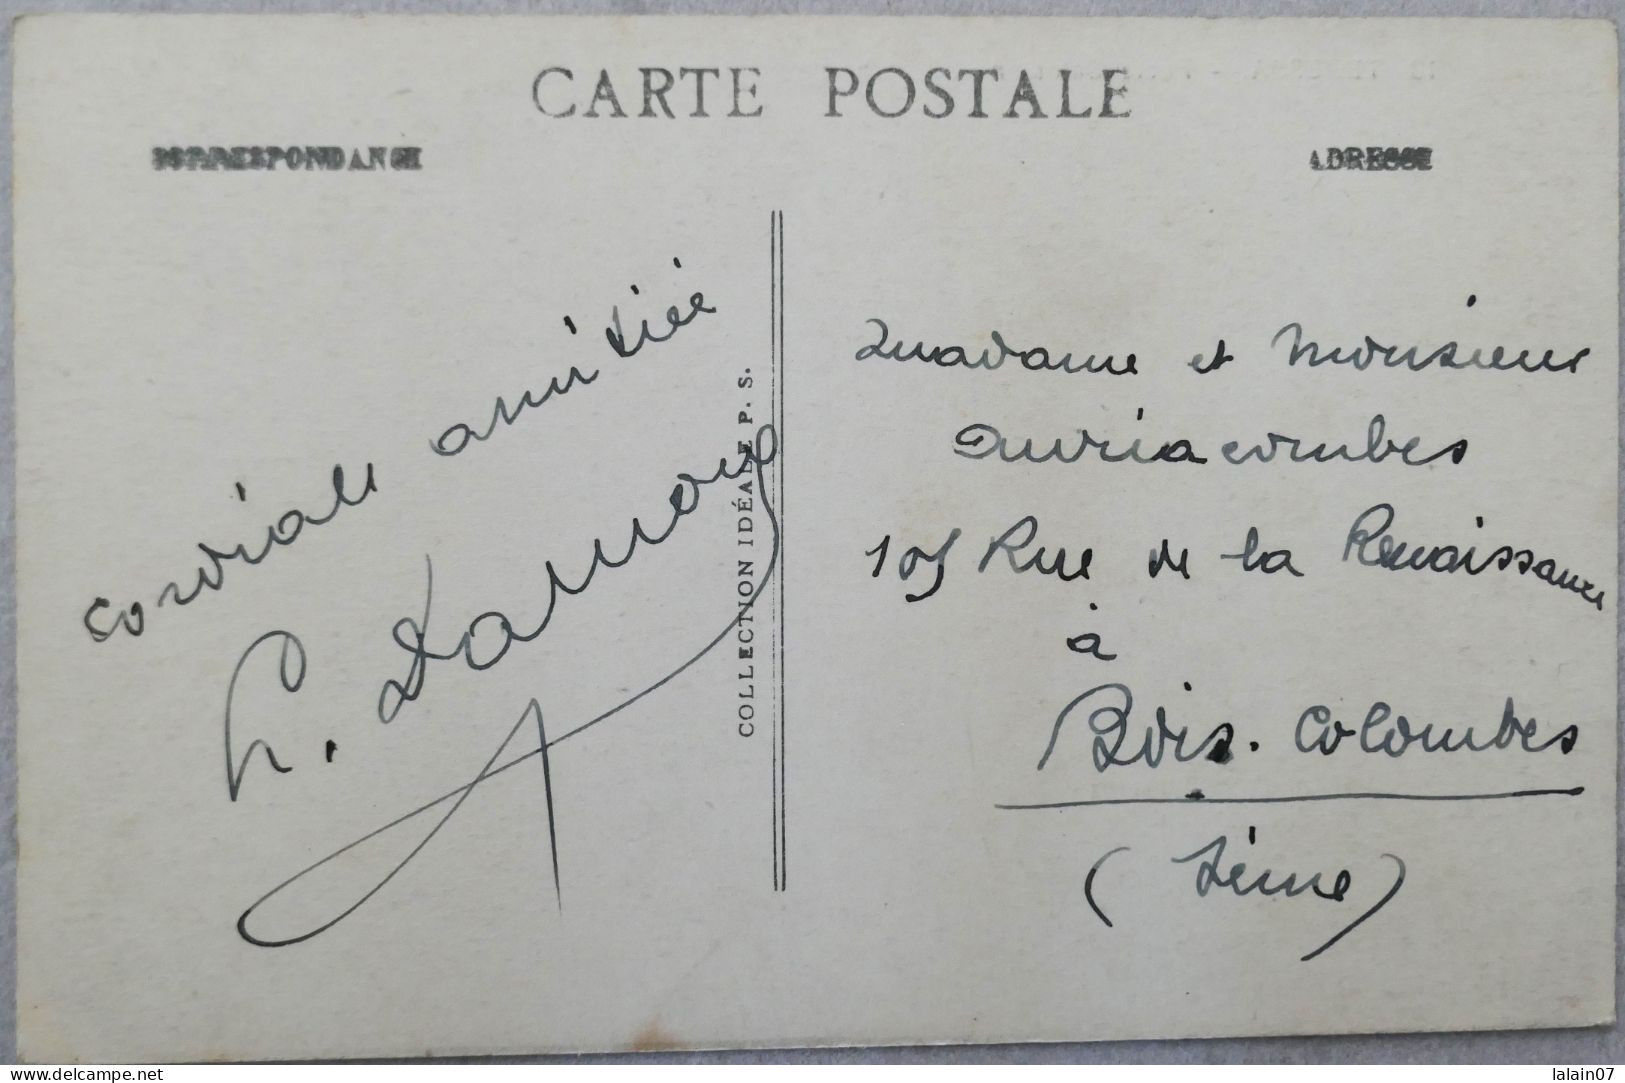 CARTE POSTALE
CORRESPONDANCE
ADRESSE
cordiale amitiée
COLLECTION IDÉALE P. S.
Madame et Monsieur
Auriacombes
105 Rue de la Renaissance
à
Bois. Colombes
(Seine)
delcampe.net
lalain07